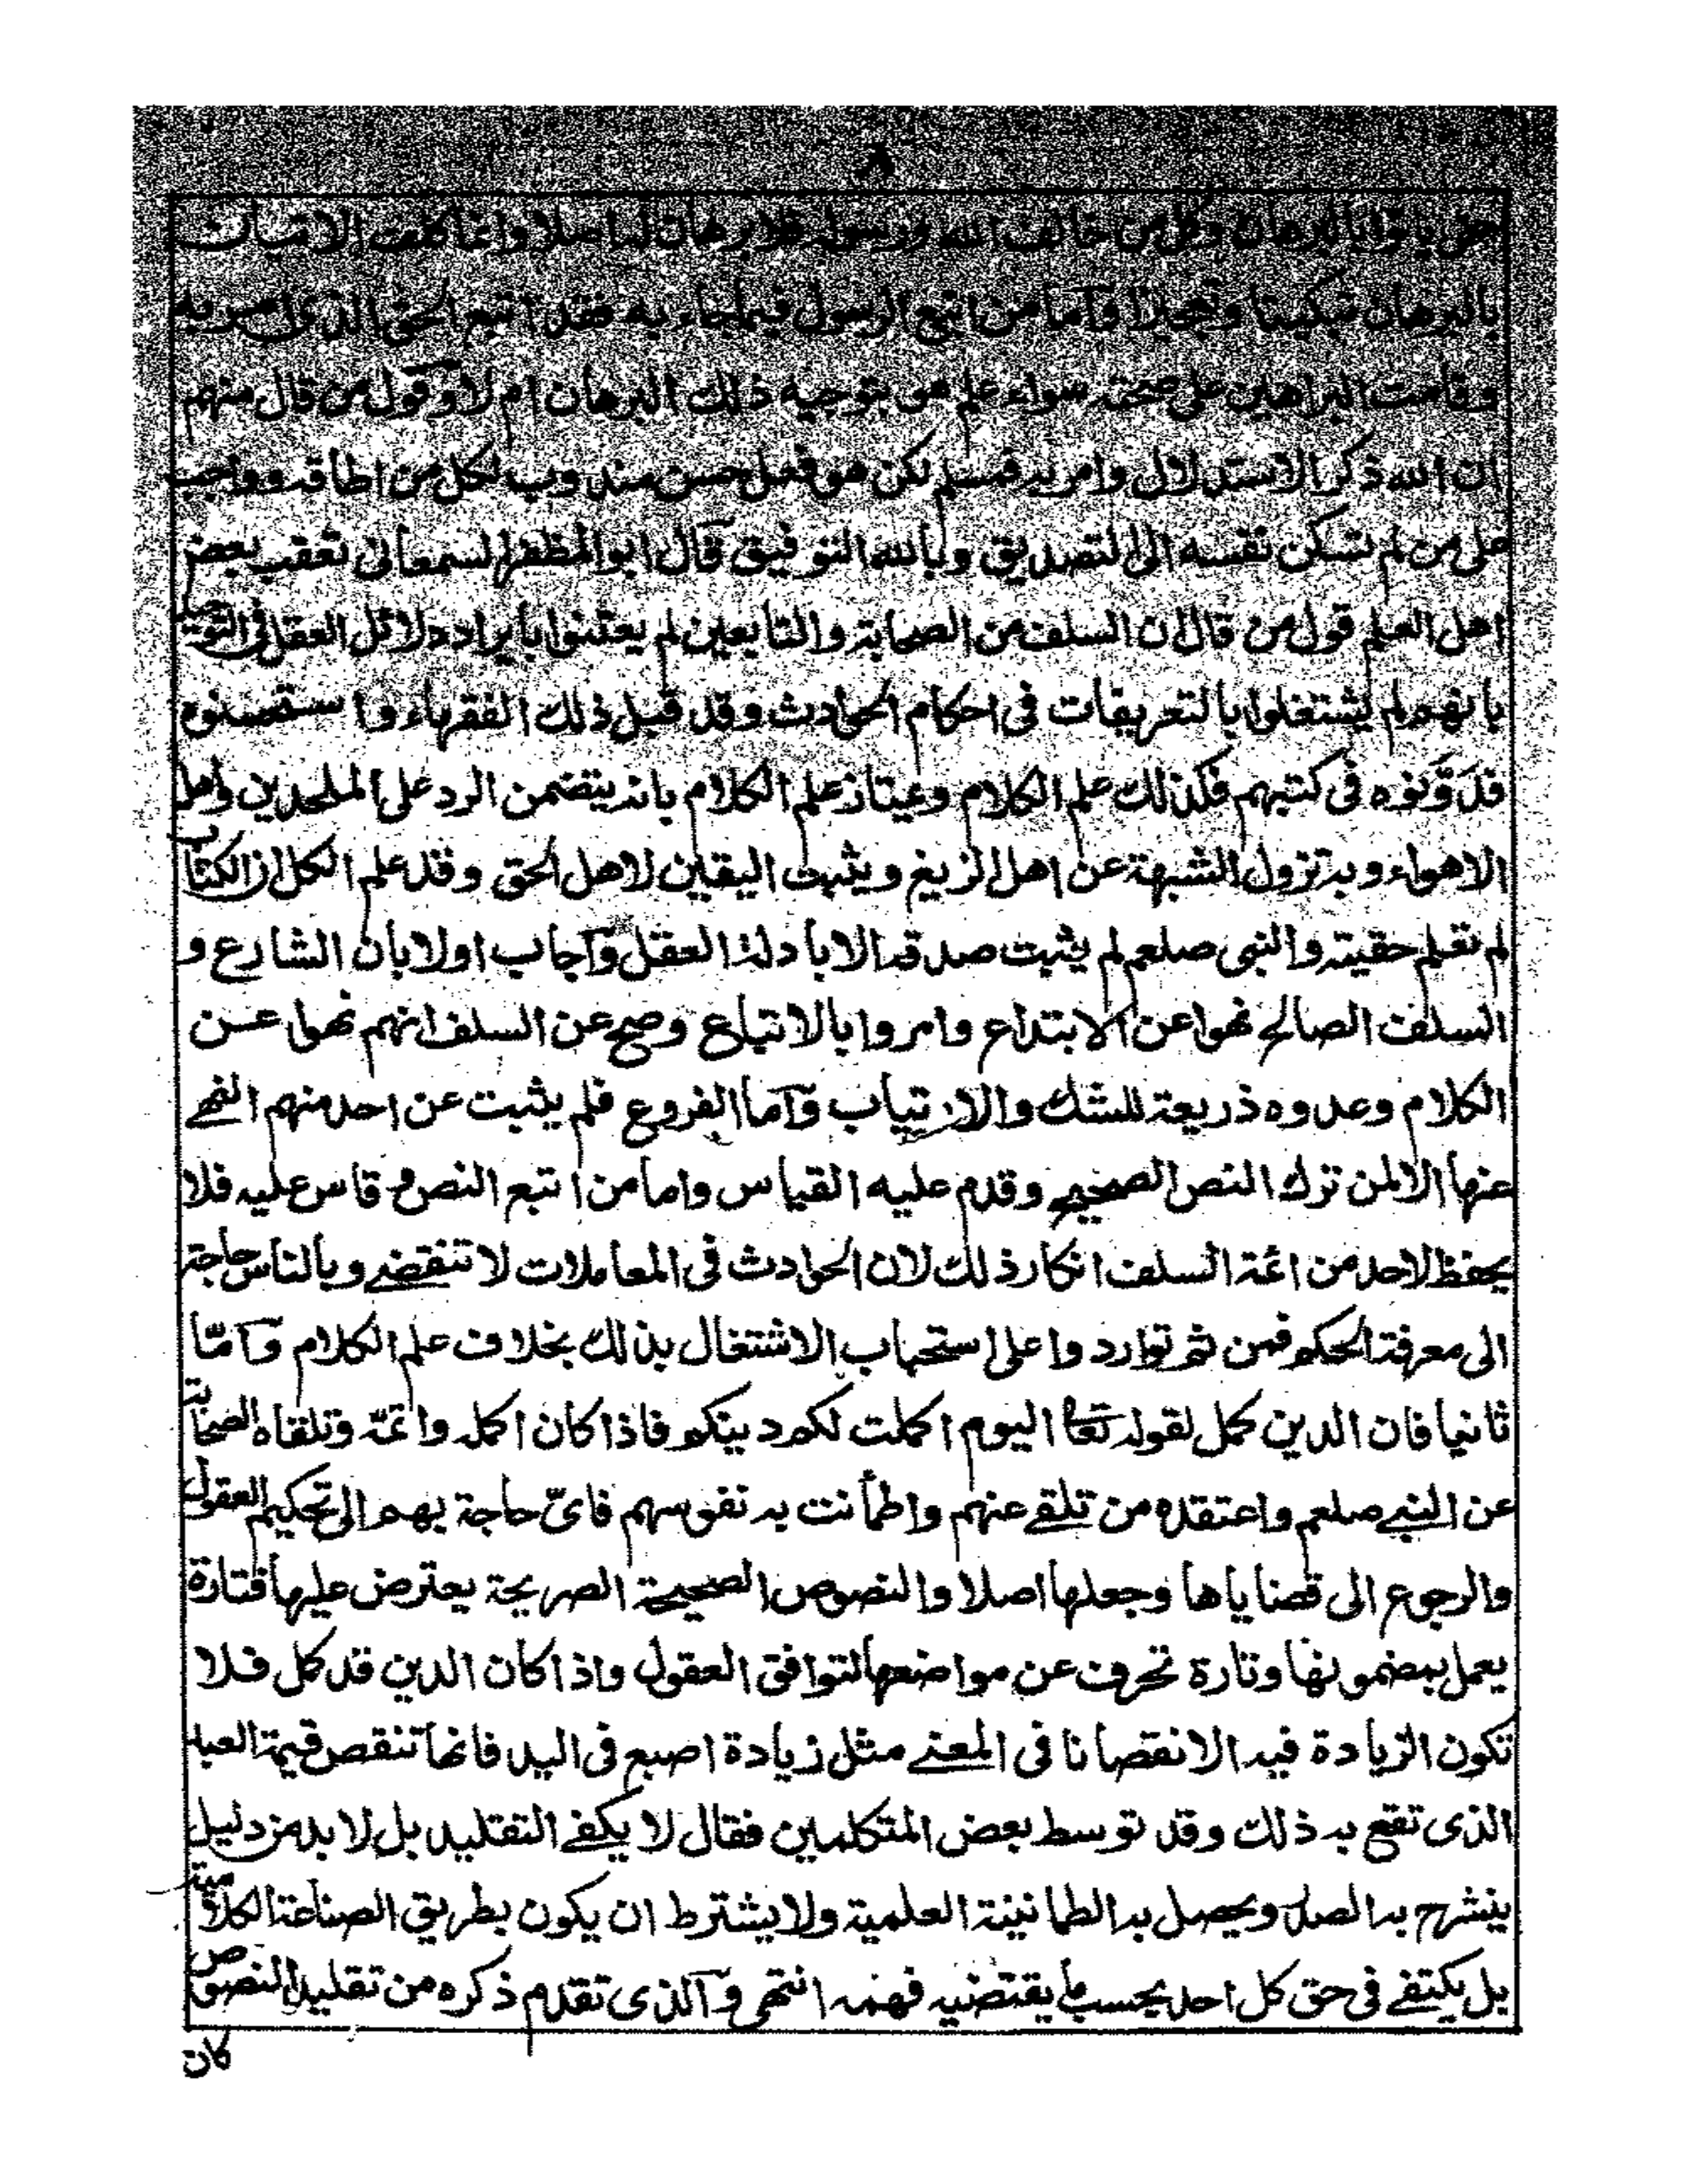 ٨
حتى ياتوا بالبرهان وكل من خالف الله ورسوله فلا برهان له اصلا وانما كلفت الاتيان
بالبرهان تبكيتا وتعجيزا وآما من اتبع الرسول فيما جاء به فقد اتبع الحق الذى امر به
وقامت البراهين على صحته سواء علم هو بتوجيه ذلك البرهان ام لا وقول من قال منهم
ان الله ذكر الاستدلال وامر به فمسلم لكن هو فعل حسن مندوب لكل من اطاقه وواجب
على من لم تسكن نفسه الى التصديق وبالله التوفيق قآل ابو المظفر السمعانى تعقب بعض
اهل العلم قول من قال ان السلف من الصحابة والتابعين لم يعتنوا بايراد دلائل العقل فى التوحيد
بانهم لم يشتغلوا بالتعريفات فى احكام الحوادث وقد قبل ذلك الفقهاء واستحسنوه
فدوَّنوه فى كتبهم فكذلك علم الكلام ويمتاز علم الكلام بانه يتضمن الرد على الملحدين واهل
الاهواء وبه تزول الشبهة عن اهل الزيغ ويثبت اليقين لاهل الحق وقد علم الكل ان الكتاب
لم تعلم حقيته والنبى صلعم لم يثبت صدقه الا بادلة العقل وآجاب اولا بان الشارع و
السلف الصالح نهوا عن الابتداع وامروا بالاتباع وصح عن السلف انهم نهوا عن
الكلام وعدوه ذريعة للشك والارتياب وآما الفروع فلم يثبت عن احد منهم النهے
عنها الا لمن ترك النص الصحيح وقدم عليه القياس واما من اتبع النص وقاس عليه فلا
يحفظ لاحد من ائمة السلف انكار ذلك لان الحوادث فى المعاملات لا تنقضے وبالناس حاجة
الى معرفة الحكم فمن ثم تواردوا على استحباب الاشتغال بذلك بخلاف علم الكلام وآمّا
ثانيا فان الدين كمل لقوله تعا اليوم اكملت لكم دينكم فاذا كان اكمله واتمّه وتلقاه الصحابة
عن النبے صلعم واعتقده من تلقے عنهم واطمأنت به نفوسهم فاىّ حاجة بهم الى تحكيم العقول
والرجوع الى قضاياها وجعلها اصلا والنصوص الصحيحة الصريحة يعترض عليها فتارة
يعمل بمضمونها وتارة تحرف عن مواضعها لتوافق العقول واذا كان الدين قد كمل فلا
تكون الزيادة فيه الا نقصانا فى المعنے مثل زيادة اصبع فى اليد فانها تنقص قيمة العبد
الذى تقع به ذلك وقد توسط بعض المتكلمين فقال لا يكفے التقليد بل لا بد من دليل
ينشرح به الصدر ويحصل به الطمانينة العلمية ولا يشترط ان يكون بطريق الصناعة الكلامية
بل يكتفے فى حق كل احد بحسب ما يقتضيه فهمه انتهى وآلذى تقدم ذكره من تقليد النصوص
كان